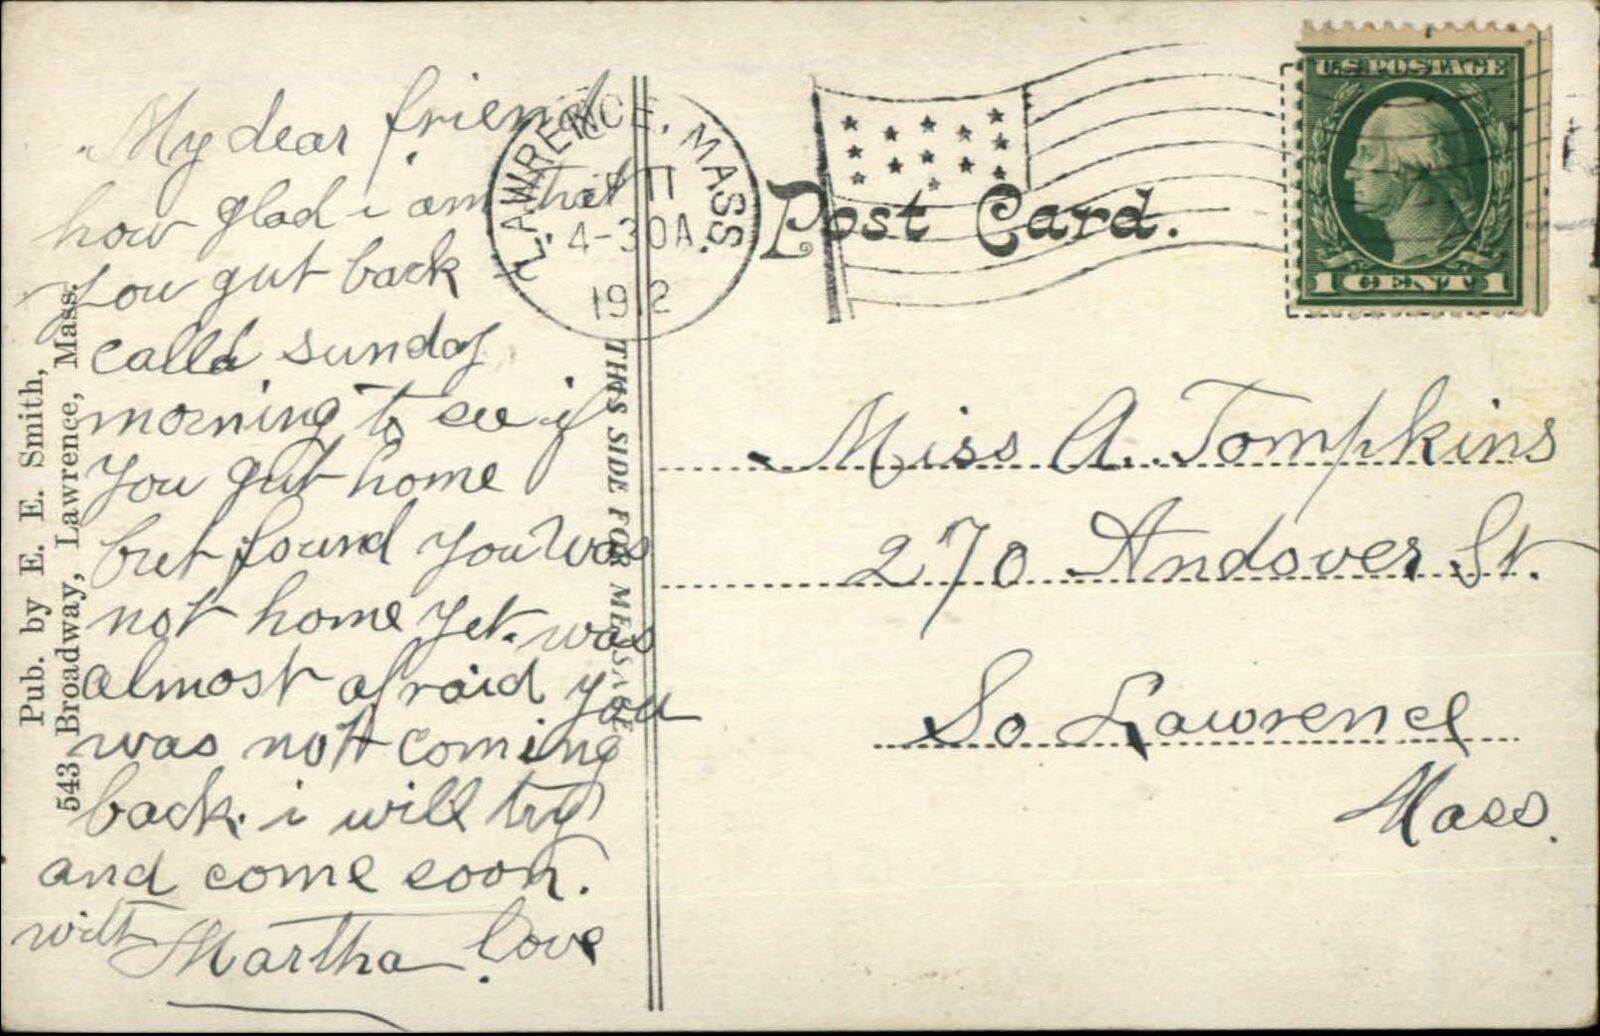 My dear friend
how glad i am that
you gut back
calld sunday
morning to see if
you gut home
but found you was
not home yet. was
almost afraid you
was nott coming
back. i will try
and come soon.
with Martha Love
Pub. by E. E. Smith,
543 Broadway, Lawrence, Mass.
THIS SIDE FOR MESSAGE
LAWRENCE, MASS.
11
4-30A.
1912
Post Card.
U.S. POSTAGE
1 CENT 1
Miss A. Tompkins
270 Andover St.
So Lawrence
Mass.